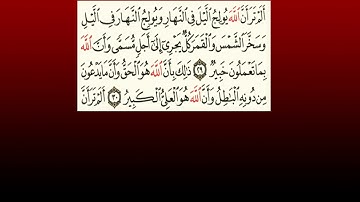 أَلَمْ تَرَ أَنَّ اللَّهَ يُولِجُ الَّيْلَ فِى النَّهَارِ وَيُولِجُ النَّهَارَ فِى الَّيْلِ
وَسَخَّرَ الشَّمْسَ وَالْقَمَرَ كُلٌّ يَجْرِىٓ إِلَىٰٓ أَجَلٍ مُّسَمًّى وَأَنَّ اللَّهَ
بِمَا تَعْمَلُونَ خَبِيرٌ ٢٩ ذَٰلِكَ بِأَنَّ اللَّهَ هُوَ الْحَقُّ وَأَنَّ مَا يَدْعُونَ
مِن دُونِهِ الْبَٰطِلُ وَأَنَّ اللَّهَ هُوَ الْعَلِىُّ الْكَبِيرُ ٣٠ أَلَمْ تَرَ أَنَّ